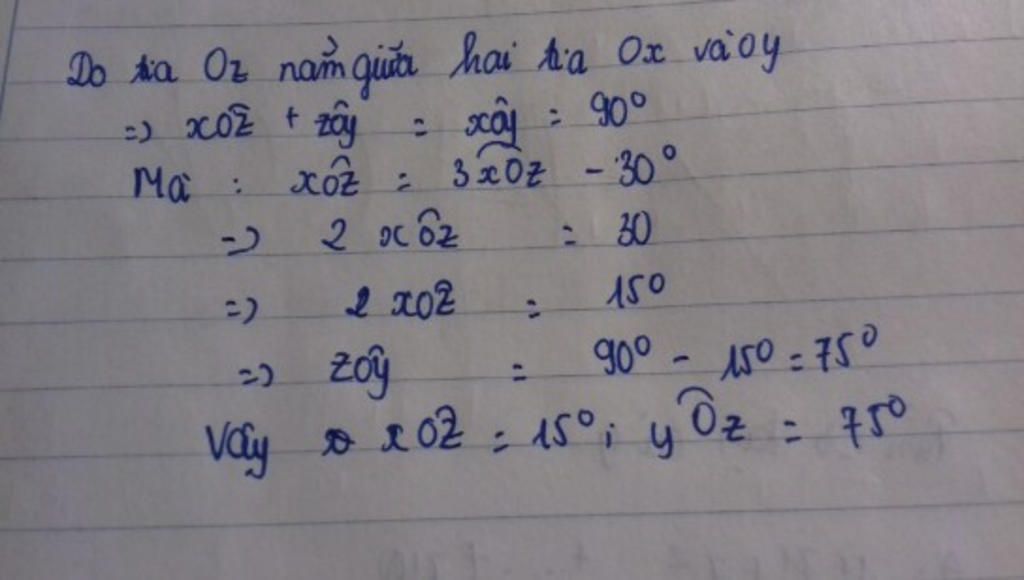 Do tia Oz nằm giữa hai tia Ox và Oy
=> xÔz + zôy = xôy = 90°
Mà : xôz = 3xÔz - 30°
-> 2 xÔz = 30
=> 2 xOz = 15°
=> zôy = 90° - 15° = 75°
Vậy xOz = 15°; yÔz = 75°